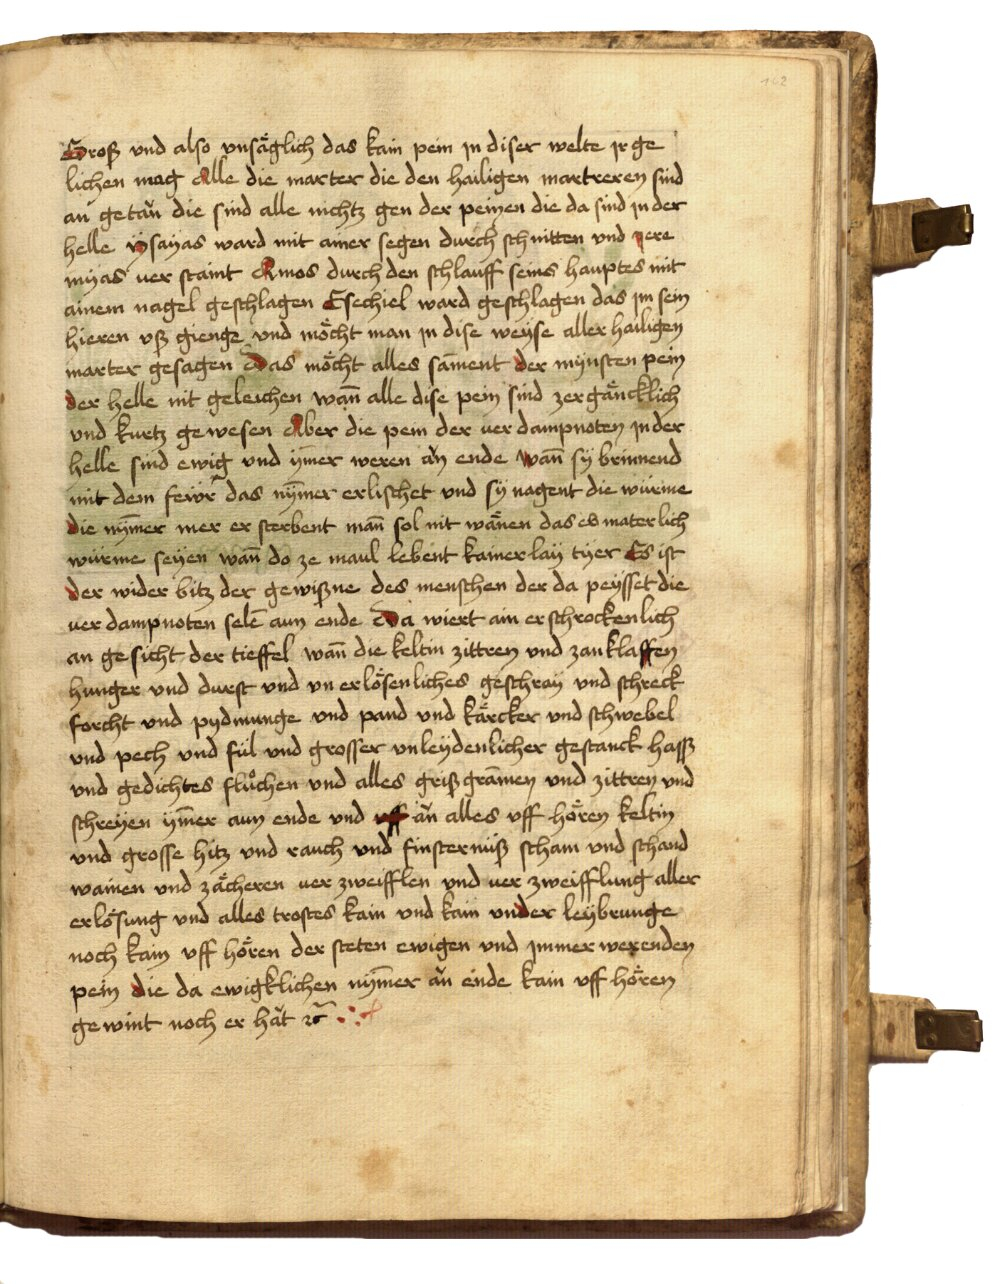 162
Groß vnd also vnsäglich das kain pein jn diser welte jr ge
lichen mag Alle die marter die den hailigen martreren sind
an getän die sind alle nichtz gen der peinen die da sind jn der
helle ysayas ward mit ainer segen durch schnitten vnd jere
myas ver staint Amos durch den schlauff seins hauptes mit
ainem nagel geschlagen Esechiel ward geschlagen das jm sein
hieren vß gienge vnd möcht man jn dise weyse aller hailigen
marter gesagen Das möcht alles sāment der mynsten pein
der helle nit geleichen wañ alle dise pein sind zergäncklich
vnd kurtz gewesen Aber die pein der verdampnoten jn der
helle sind ewig vnd ym̄er weren än ende wañ sy brinnend
mit dem fewr das nym̄er erlischet vnd sy nagent die würme
die nym̄er mer er sterbent mañ sol nit wänen das es materlich
würme seyen wañ do ze maul lebent kainerlay tyer Es ist
der wider bitz der gewißne des menschen der da peysset die
verdampnoten selē aun ende Da wiert ain erschrockenlich
an gesicht der tieffel wañ die keltin zittren vnd zanklaffen
hunger vnd durst vnd vn erlösenliches geschray vnd schreck
forcht vnd pydmunge vnd pand vnd kärcker vnd schwebel
vnd pech vnd fül vnd grosser vnleydenlicher gestanck hassz
vnd gedichtes flůchen vnd alles grißgrāmen vnd zittren vnd
schreyen ym̄er aun ende vnd än alles vff hören keltin
vnd grosse hitz vnd rauch vnd finsternüß scham vnd schand
wainen vnd zächeren ver zweifflen vnd ver zweifflung aller
erlösung vnd alles trostes kain vnd kain vnder leybrunge
noch kain vff hören der steten ewigen vnd jmmer werenden
pein die da ewigklichen nym̄er än ende kain vff hören
gewint noch er hät ⁊c̃